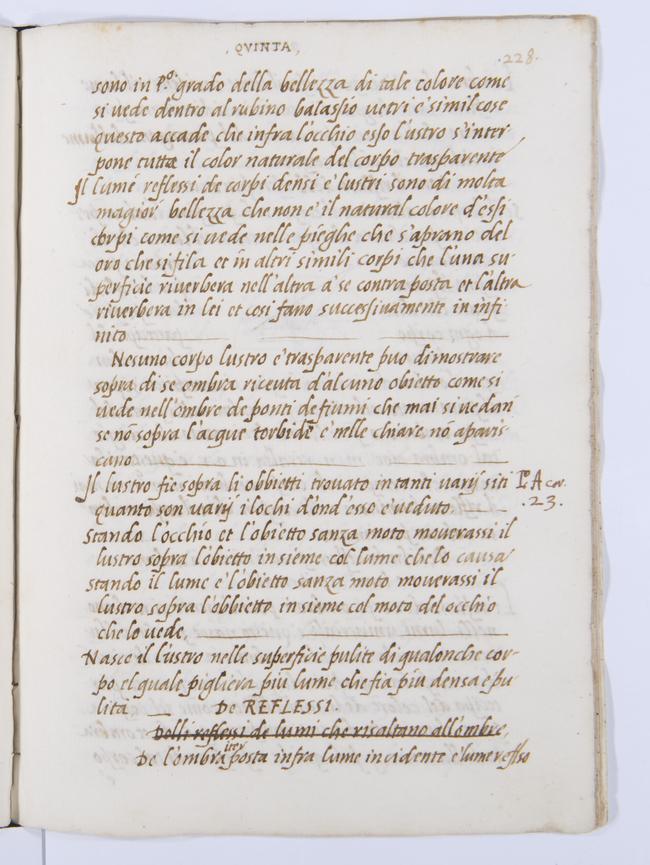 . QVINTA .
.228.
sono in P.º grado della bellezza di tale colore come
si vede dentro al rubino balassio vetri e simil cose
questo accade che infra l'occhio esso lustro s'inter
pone tutta il color naturale del corpo trasparente
Il lume reflessi de corpi densi e lustri sono di molta
magior bellezza che non e il natural colore d'essi
corpi come si vede nelle pieghe che s'aprano del
oro che si fila et in altri simili corpi che l'una su-
perficie riverbera nell'altra a se contraposta et l'altra
riverbera in lei et cosi fano successivamente in infi
nito
Nesuno corpo lustro e trasparente puo dimostrare
sopra di se ombra riceuta d'alcuno obietto come si
vede nell'ombre de ponti de fiumi che mai si vedan
se nõ sopra l'acque torbide e nelle chiare nõ aparis-
cano
Il lustro fie sopra li obbietti trovato in tanti varij siti
quanto son varij i lochi d'ond'esso e veduto
Lº A car.
.23.
Stando l'occhio et l'obietto sanza moto moverassi il
lustro sopra l'obietto insieme col lume che lo causa
Stando il lume e l'obietto sanza moto moverassi il
lustro sopra l'obbietto insieme col moto del occhio
che lo vede.
Nasce il lustro nelle superficie pulite di qualonche cor-
po el quale pigliera piu lume che fia piu densa e pu-
lita De REFLESSI
Delli reflessi de lumi che risaltano all'ombre.
De l'ombra interposta infra lume incidente e lume reflesso